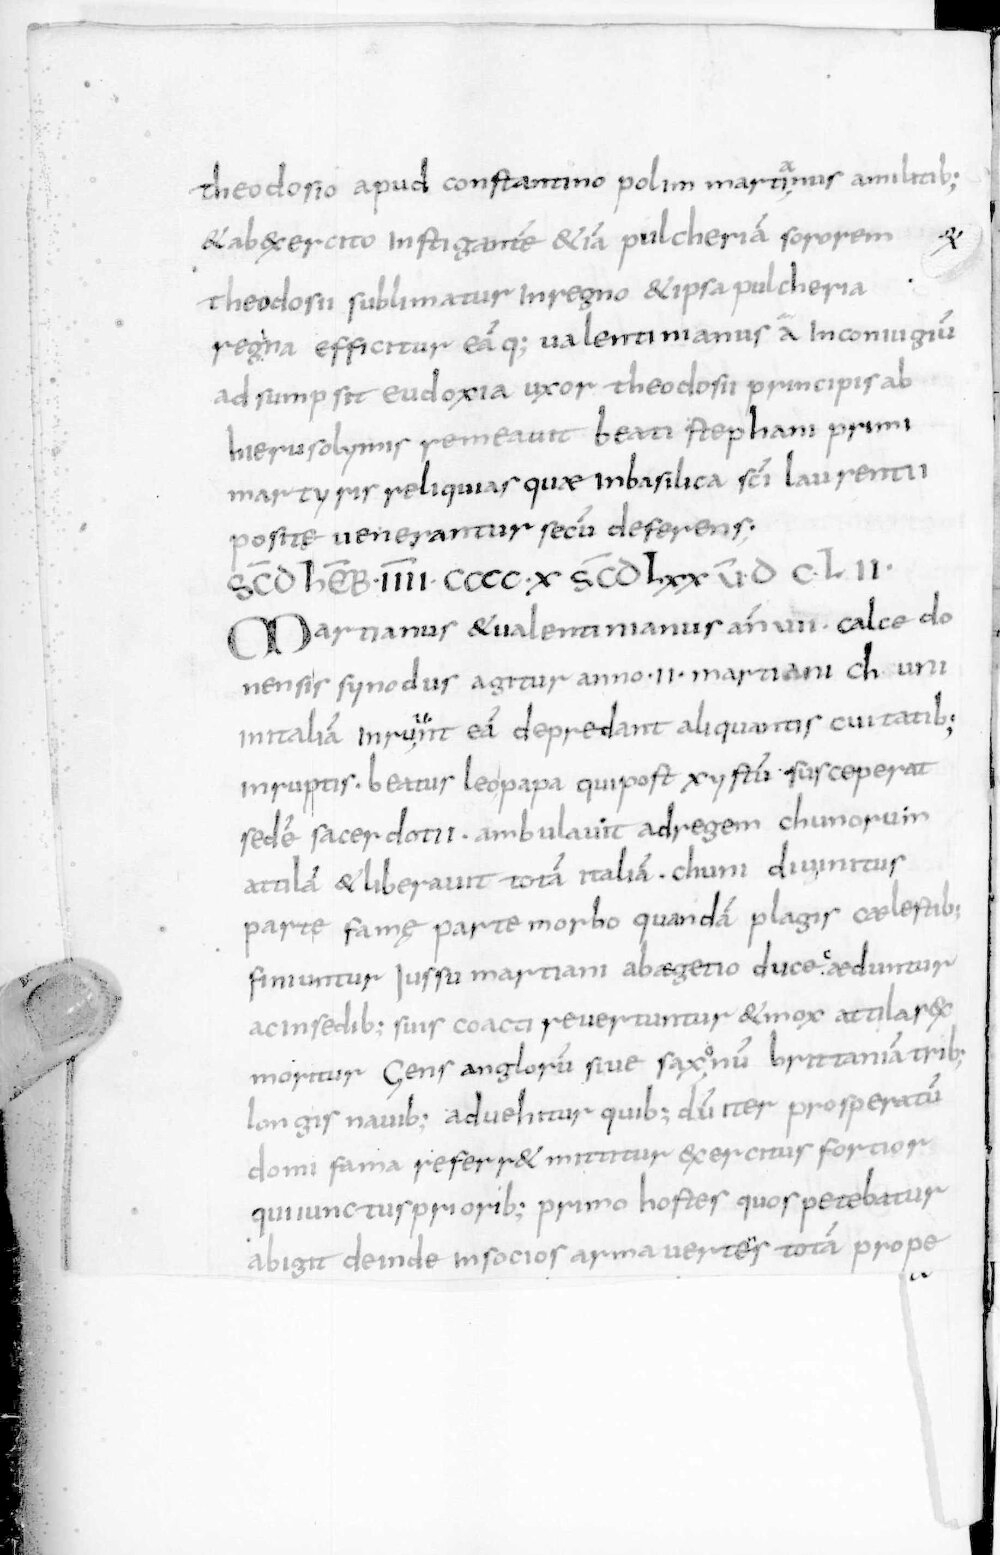 theodosio apud constantino polim martianus amilitib;
& ab exercito instigante & iā pulcheriā sororem &
theodosii sublimatur inregno & ipsa pulcheria
regina efficitur eāq; ualentinianus ā inconiugiū
adsumpsit eudoxia uxor theodosii principis ab
hierusolymis remeauit beati stephani primi
martyris reliquias quæ inbasilica sc̄i laurentii
positę uenerantur secū deferens;
SC̄D HĒB · IIII · CCCC · X SC̄D LXX ū · D C · L II ·
Martianus & ualentinianus an̄ uii · calcedo
nensis synodus agitur anno · ii · martiani ch uni
initaliā inruunt eā depredant aliquantis ciuitatib;
inruptis · beatus leo papa qui post xystū susceperat
sedē sacerdotii · ambulauit adregem chunorum
attilā & liberauit totā italiā · chuni diuinitus
parte famę parte morbo quandā plagis cælestib;
finiuntur iussu martiani abægetio duce cæduntur
acinsedib; suis coacti reuertuntur & mox attila rex
moritur Gens anglorū siue saxonū brittaniā trib;
longis nauib; aduehitur quib; dū iter prosperatū
domi fama referr& mittitur exercitus fortior
qui iunctus priorib; primo hostes quos petebatur
abigit deinde insocios arma uertens totā prope